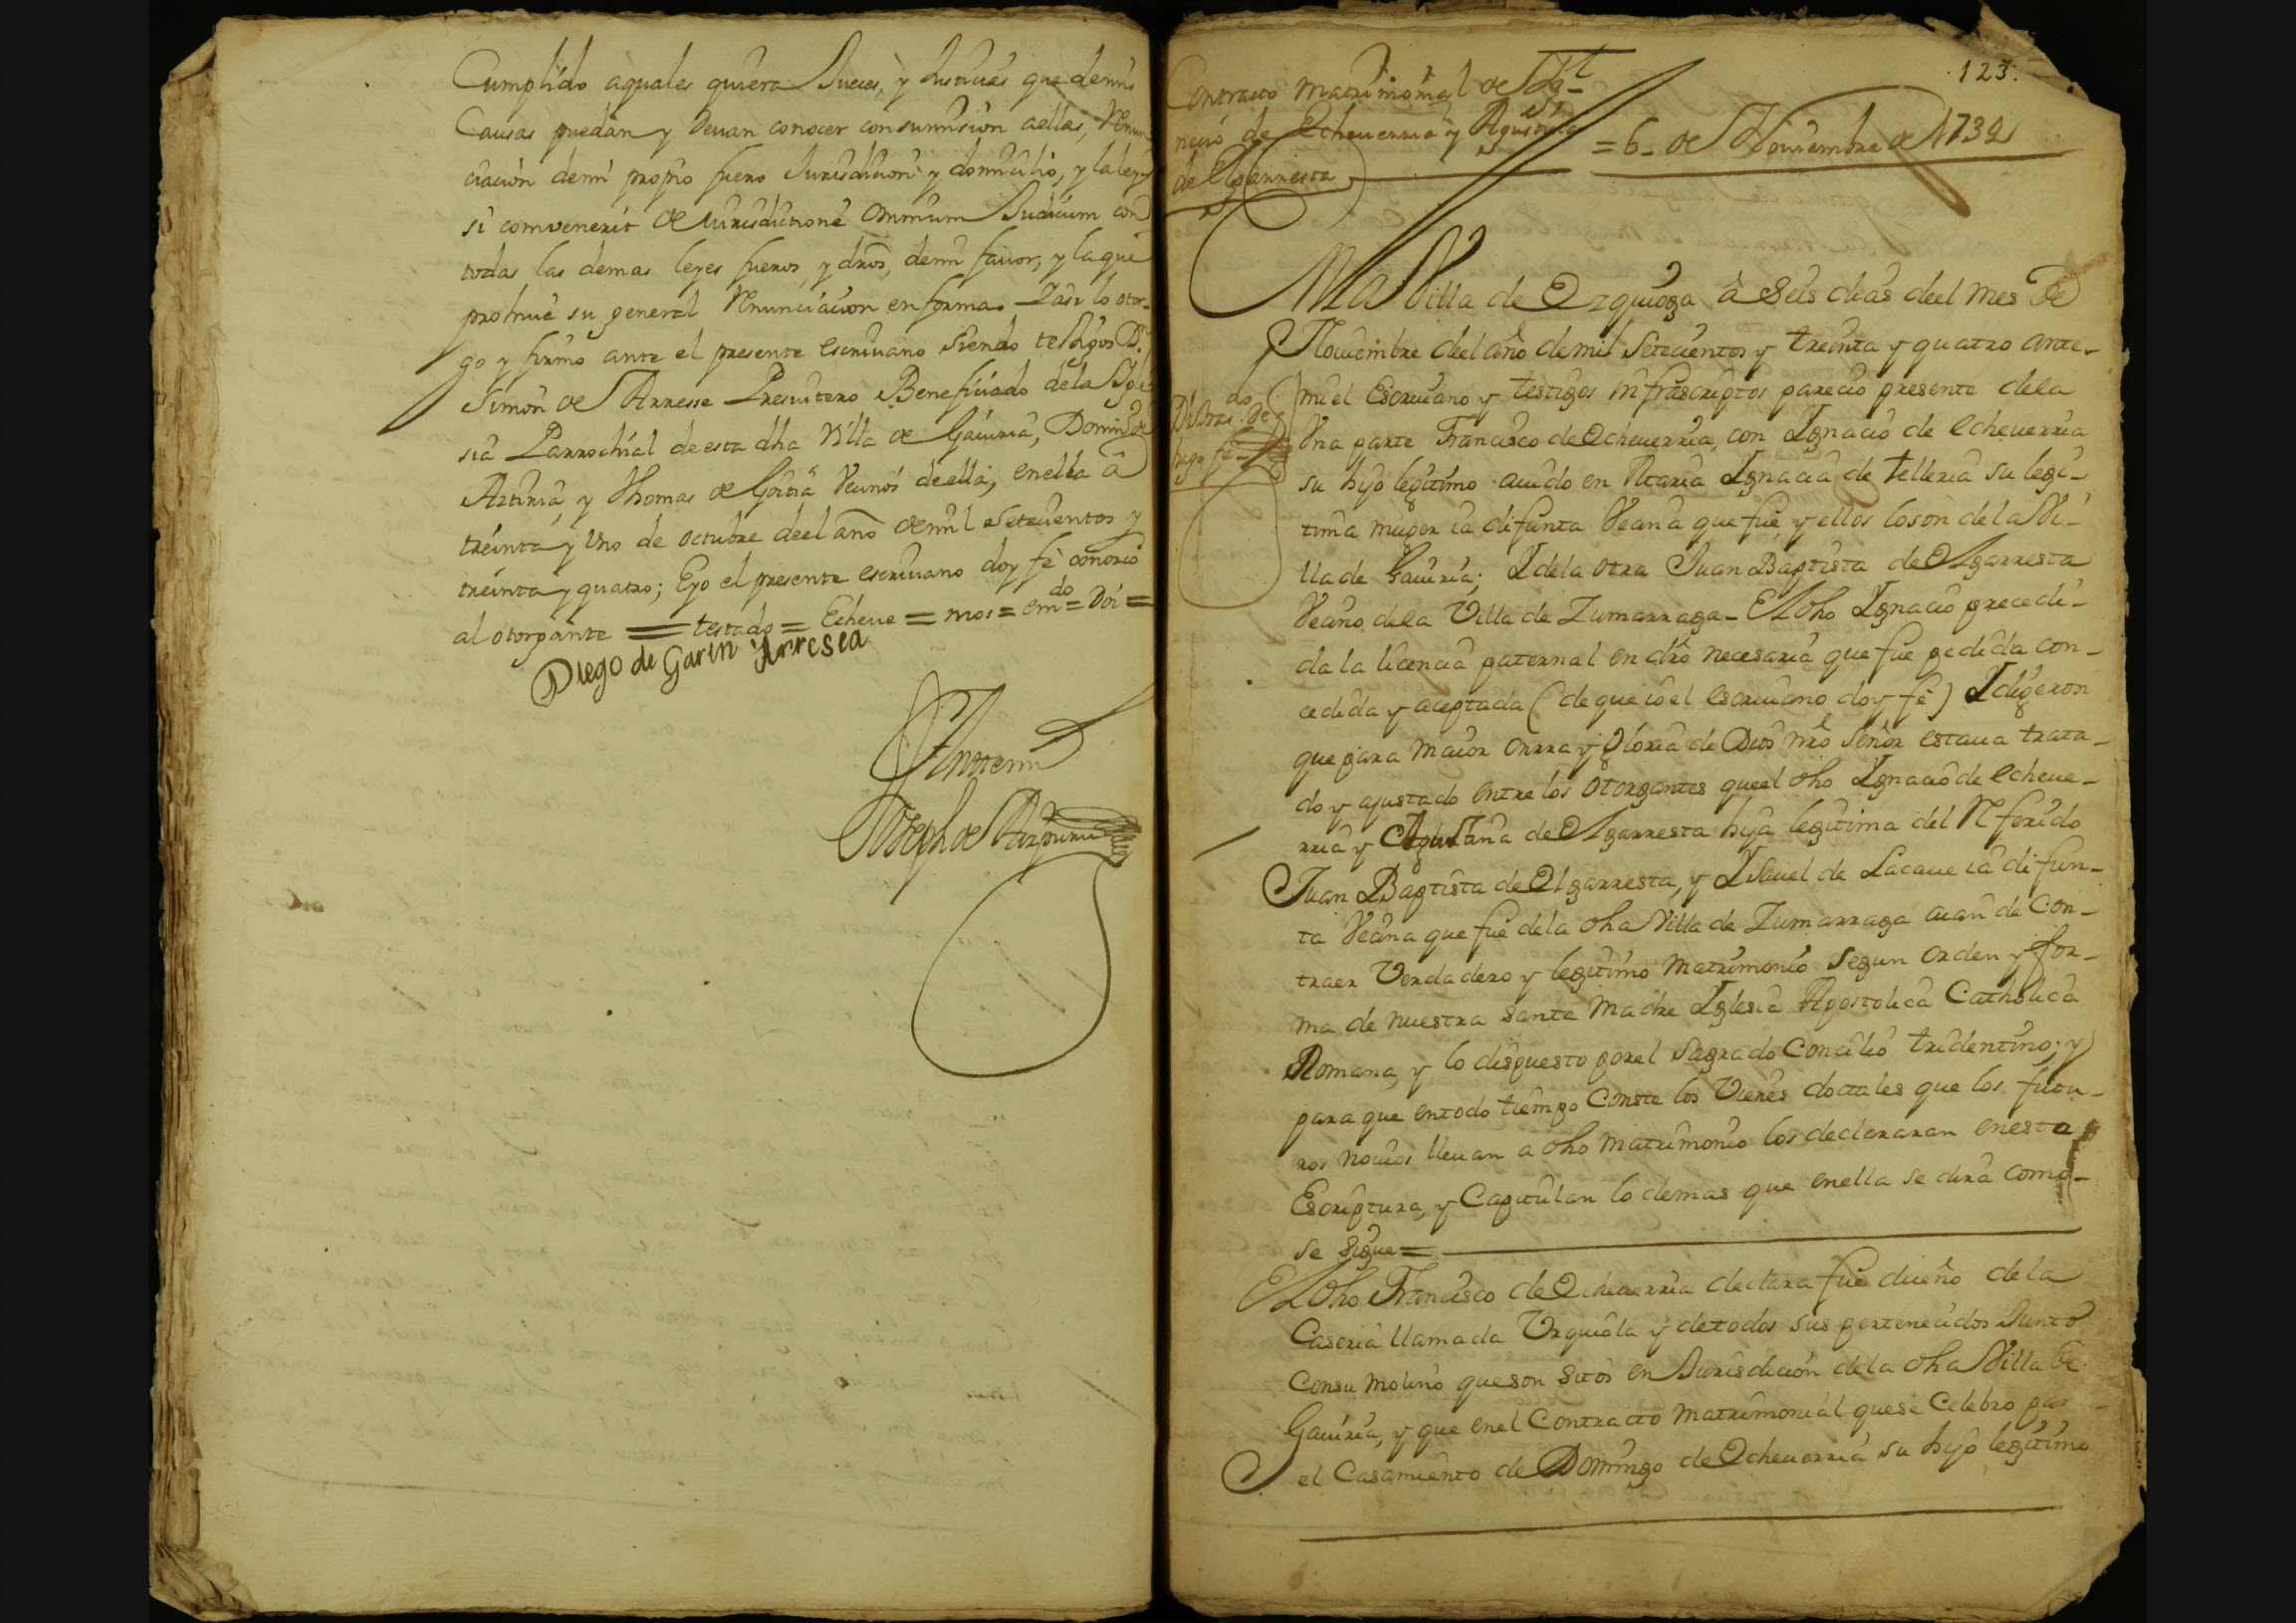 Cumplido aquales quiera Jueces, y Justicias que demis
Causas puedan y devan conocer consumision aellas, Renun
ciacion demi propio fuero Jurisdicion y domicilio, y la ley
si comvenerit de Jurisdictione omnium Judicum con
todas las demas leyes fueros, y dros, demi favor, y la que
prohive su general Renunciacion en forma. Yasi lo otor-
go y firmo ante el presente escrivano siendo testigos Dn
Simon de Arresse Presvitero Beneficiado dela Igle
sia Parrochial de esta dha Villa de Gaviria, Domingo de
y Thomas de Goitia Vecinos de ella, enella â
treinta y Uno de octubre deel año de mil Setecientos y
treinta y quatro; Eyo el presente escrivano doy fê conozco
al otorgante = testado = Echeve = mos = emdo = Doi =
Diego de Garin Yrresea
Antemi
Joseph de Aizpuru
123.
Contracto Matrimonial de Ig-
nacio de Echeverria y Agustina
de Elgarresta
= 6 - de Noviembre de 1734
En la Villa de Ezquioga â Seis dias deel Mes de
Noviembre deel año de mil Setecientos y treinta y quatro ante-
mi el Escrivano y testigos infrascriptos parecio presente dela
Una parte Francisco de Echeverria, con Ignacio de Echeverria
su hijo legitimo avido en Maria Ignacia de Telleria su legi-
tima muger ia difunta Vecina que fue, y ellos loson dela Vi-
lla de Gaviria; Y dela otra Juan Baptista de Elgarresta
Vecino dela Villa de Zumarraga - El dho Ignacio precedi-
da la licencia paternal en dro necesaria que fue pedida con-
cedida y aceptada (de que io el escrivano doy fê) Y digeron
que para maior onrra y gloria de Dios nro Señor estava trata-
do y ajustado entre los otorgantes que el dho Ignacio de Echeve-
rria y Agustina de Elgarresta hija legitima del Referido
Juan Baptista de Elgarresta, y Isavel de Lacave ia difun-
ta Vecina que fue dela dha Villa de Zumarraga avian de Con-
traer Verdadero y legitimo Matrimonio segun orden y for-
ma de nuestra Santa Madre Iglesia Apostolica Catholica
Romana, y lo dispuesto por el Sagrado Concilio tridentino; y
para que entodo tiempo Conste los Vienes dotales que los futu-
ros novios llevan a dho Matrimonio los declararan enesta
Escriptura, y Capitulan lo demas que enella se dira como-
se sigue =
El dho Francisco de Echeverria declara fue dueño dela
Caseria llamada Urquiola y detodos sus pertenecidos Junto
Consu Molino que son sitos en Jurisdicion dela dha Villa de
Gaviria, y que enel Contracto Matrimonial que se Celebro par
el Casamiento de Domingo de Echeverria su hijo legitimo